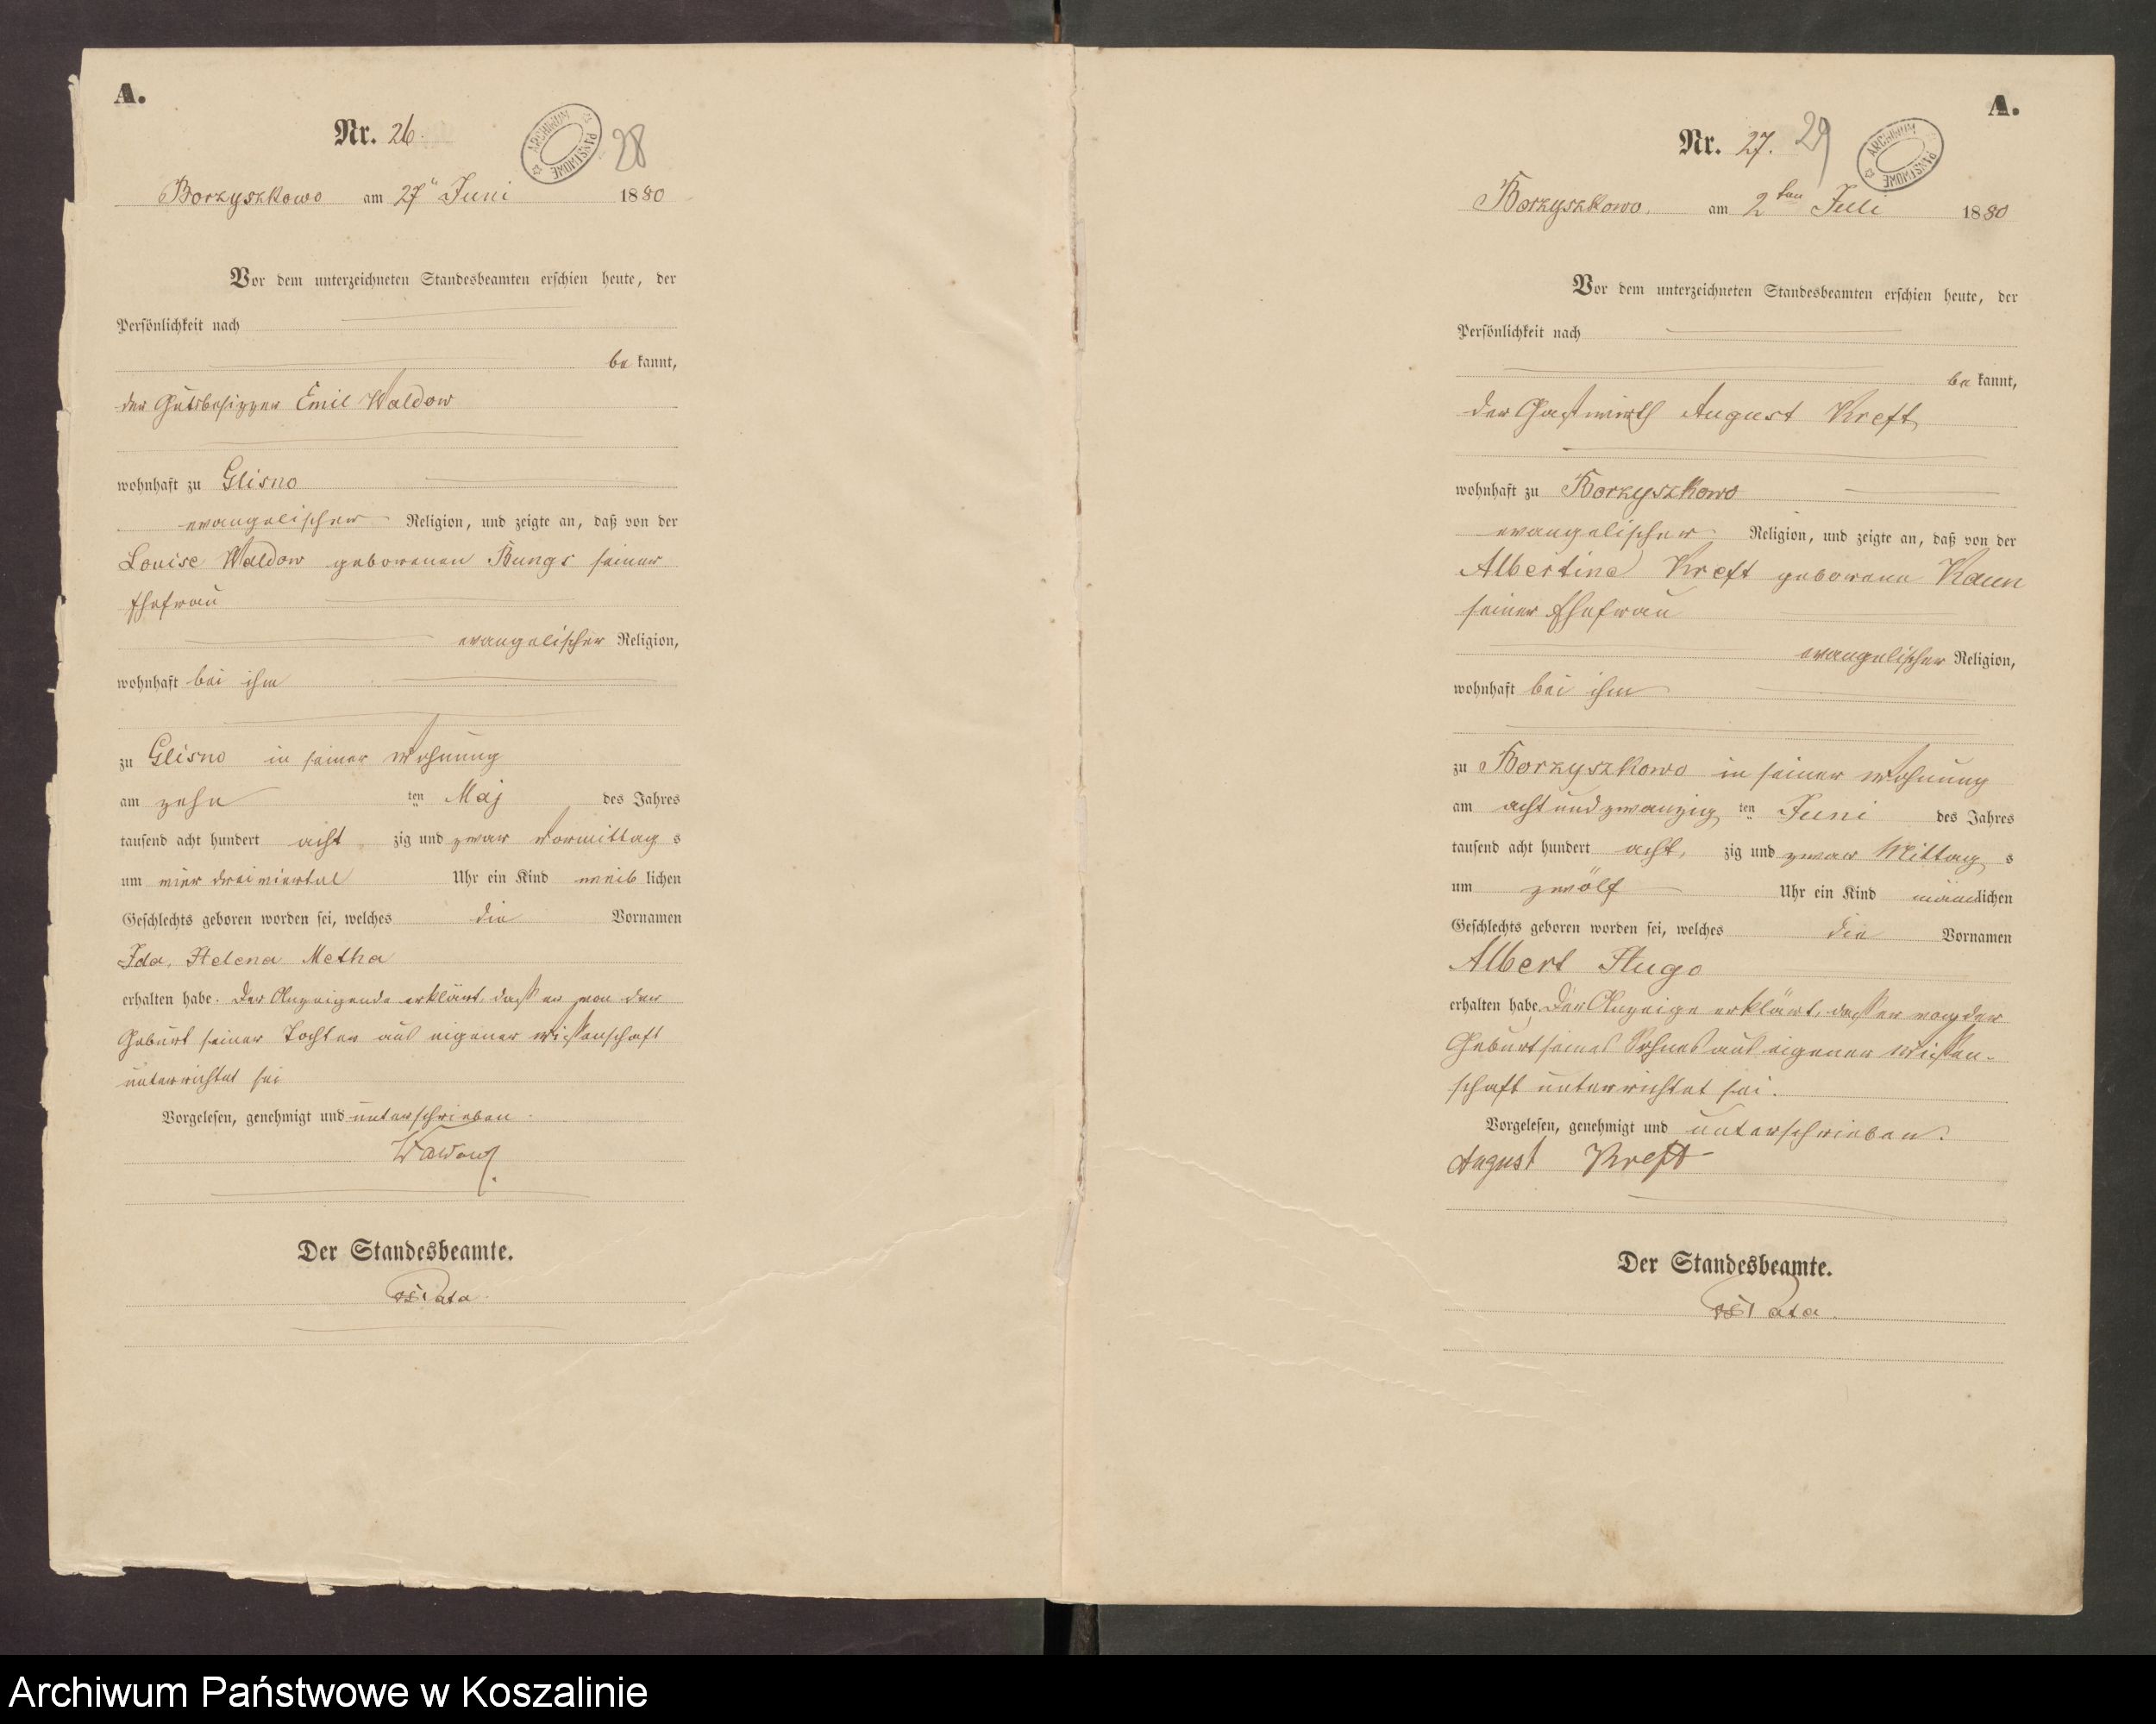 A.
Nr. 26.
ARCHIWUM PAŃSTWOWE
28
Borzyszkowo am 27" Juni 1880
Vor dem unterzeichneten Standesbeamten erschien heute, der
Persönlichkeit nach
be kannt,
der Gutsbesitzer Emil Waldow
wohnhaft zu Glisno
evangelischer Religion, und zeigte an, daß von der
Louise Waldow geborenen Bungs seiner
Ehefrau
evangelischer Religion,
wohnhaft bei ihm
zu Glisno in seiner Wohnung
am zehn ten Maj des Jahres
tausend acht hundert acht zig und zwar Vormittag s
um vier dreiviertel Uhr ein Kind weib lichen
Geschlechts geboren worden sei, welches die Vornamen
Ida, Helena Metha
erhalten habe. Der Anzeigende erklärt, dass er von der
Geburt seiner Tochter aus eigener Wissenschaft
unterrichtet sei
Vorgelesen, genehmigt und unterschrieben.
Waldow
Der Standesbeamte.
A.
Nr. 27.
29
ARCHIWUM PAŃSTWOWE
Borzyszkowo, am 2ten Juli 1880
Vor dem unterzeichneten Standesbeamten erschien heute, der
Persönlichkeit nach
be kannt,
der Gastwirth August Kreft
wohnhaft zu Borzyszkowo
evangelischer Religion, und zeigte an, daß von der
Albertine Kreft geborene Kaun
seiner Ehefrau
evangelischer Religion,
wohnhaft bei ihm
zu Borzyszkowo in seiner Wohnung
am acht und zwanzig ten Juni des Jahres
tausend acht hundert acht, zig und zwar Mittag s
um zwölf Uhr ein Kind männlichen
Geschlechts geboren worden sei, welches die Vornamen
Albert Hugo
erhalten habe, Der Anzeige erklärt, dass er von der
Geburt seines Sohnes aus eigener Wissen-
schaft unterrichtet sei.
Vorgelesen, genehmigt und unterschrieben.
August Kreft
Der Standesbeamte.
Archiwum Państwowe w Koszalinie